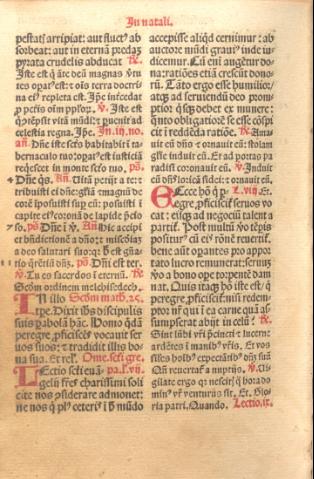 In natali.
pestatꝫ arripiat: aut fluctꝰ ab
sorbeat: aut in eternā predaꝫ
pyrata crudelis abducat ℟.
Iste est q̄ āte deū magnas ꝟtu
tes opatꝰ est: ⁊ oīs terra doctri
na eiꝰ repleta est. Ip̄e intercedat
ꝓ pctīs oīm pplōꝝ. ℣. Iste est
q̄ ꝯtēpsit vitā mūdi: ⁊ ꝑuenit ad
celestia regna. Ip̄e. In .iij. no.
añ. Dn̄e iste sctūs habitabit ī
tabernaculo tuo: opatꝰ est iusticiā
reqͥescet in monte sctō tuo. ps̄.
Dn̄e qͥs. Añ. Uitā petijt a te:
tribuisti ei dn̄e: glīaꝫ ⁊ magnū de
corē īposuisti sup eū: posuisti ī
capite eiꝰ coronā de lapide p̄cio
so. ps̄. Dn̄e ī ꝟ. Añ. Hic accipi
et bn̄dictionē a dn̄o: ⁊ miscd̄iaꝫ
a deo salutari suo: qꝛ h̄ est gn̄a
tio querētiū dn̄ꝫ. ps̄. Dn̄i est ter.
℣. Tu es sacerdos ī eternū. ℟.
Scd̄m ordinem melchisedech.
In illo Scd̄m math. 25.
tpe. Dixit ihs̄ discipulis
suis pabolā hāc. Homo qdā
peregre ꝓficiscēs vocauit ser
uos suos: ⁊ tradidit illis bo
na sua. Et rel̄. Ome. scti gre.
Lectio scti euā- pa. l. vij.
gelij frēs charissimi soli
cite nos p̄siderare admonet:
ne nos q̄ plꝰ ceteris ī h̄ mūdo
accepisse aliqͥd cernimur: ab
auctore mūdi grauiꝰ inde iu
dicemur. Cū eni augētur do
na: ratiōes etiā crescūt dono
rū. Tāto ergo esse humilior:
atqꝫ ad seruiendū deo prom
ptior qͥsqꝫ debet ex munere:
q̄nto obligatiorē se esse cōspi
cit ī reddēda ratiōe. ℟. Ama
uit eū dn̄s ⁊ ornauit eū: stolam
glīe induit eū. Et ad portas ꝑa
radisi coronauit eū. ℣. Induit
eū dn̄s loricā fidei: ⁊ ornauit eū.
Ecce hō q̄ p- L. viij. Et.
egre ꝓficiscit̄ seruos vo
cat: eisqꝫ ad negociū talent a
partit̄. Post multū ꝟo tēpis
positurꝰ cū eiꝰ rōnē reuertit̄.
bene aūt opantes pro appor
tato lucro remunerat: seruū
ꝟo a bono ope torpentē dam
nat. Quis itaqꝫ hō iste est: q̄
peregre ꝓficiscit̄: nisi redem
ptor nr̄ qͥ in ea carne quā as
sumpserat abijt in celū? ℟.
Sint lūbi vr̄i p̄cincti: ⁊ lucerne
ardētes ī manibꝰ vr̄is. Et vos
siles hoībꝰ expectātibꝰ dn̄ꝫ suū
Qn̄ reuertat̄ a nuptijs. ℣. Ui
gilate ergo qꝛ nescit̄ qͣ hora do
minꝰ vr̄ venturus sit. Et. Glo
ria patri. Quando. Lectio. ix.